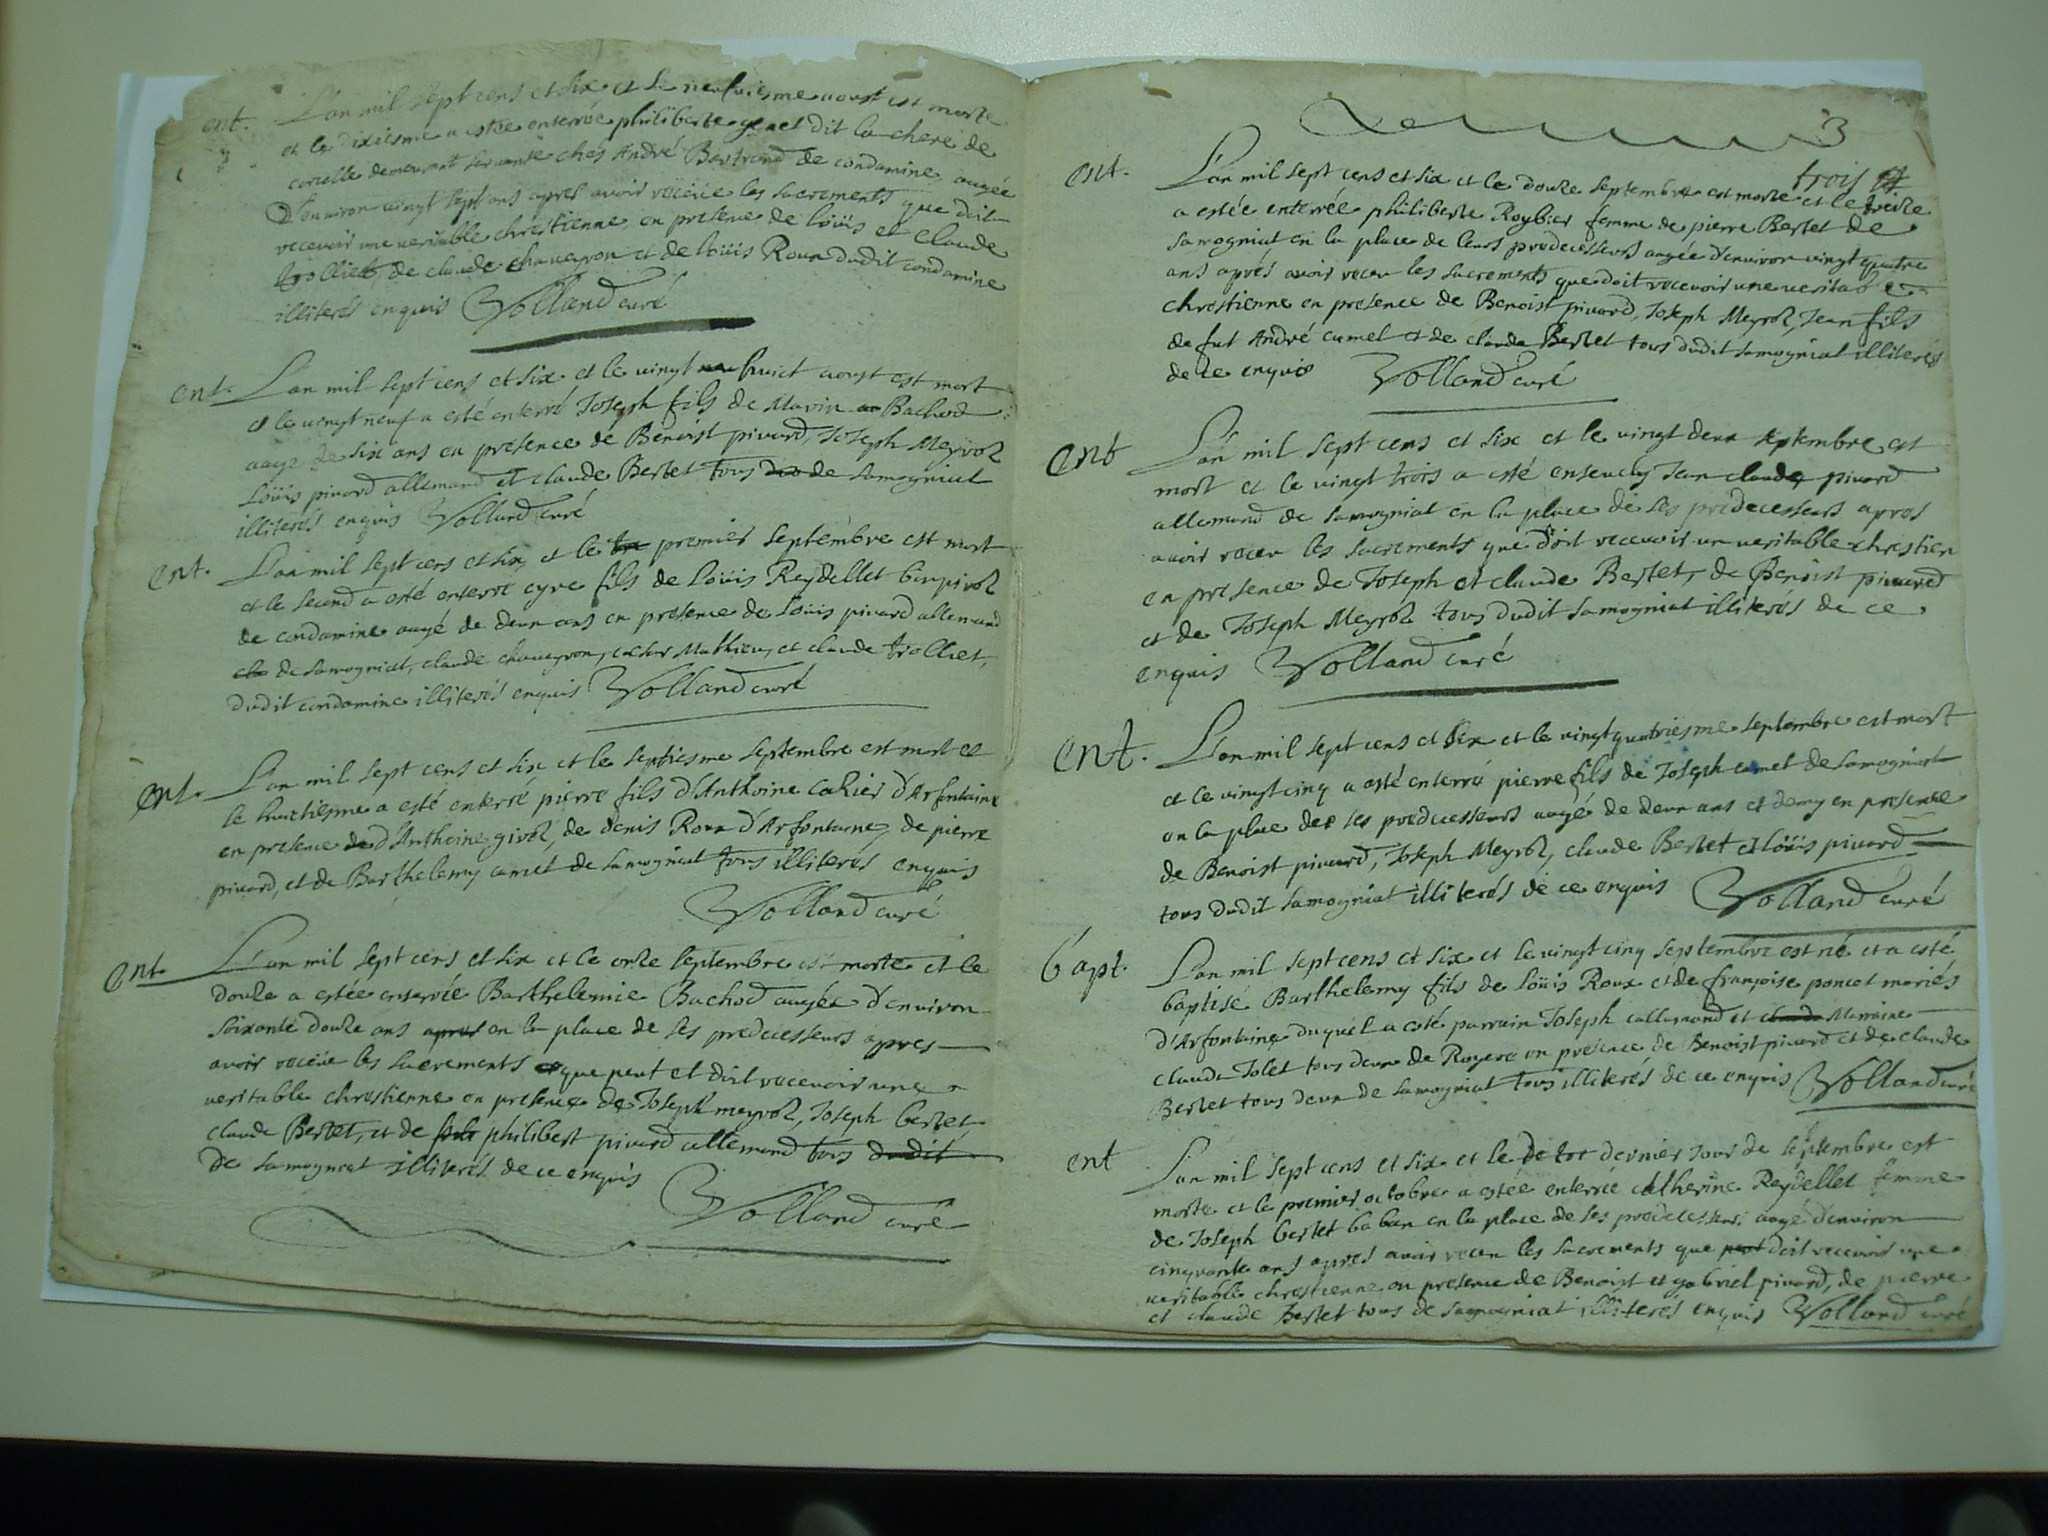 ent. L'an mil sept cens et six et le neufviesme aoust est morte
et le dixiesme a estée enterrée philiberte genet dit la chere de
corcelle demeurant servante chés André Bertrand de condamine aagée
D'environ vingt sept ans apres avoir reçeue les sacrements que doit
recevoir une veritable chrestienne en presence de loüis et claude
trolliet, de claude chaveyron et de loüis Roux dudit condamine
illiterés enquis Volland curé
ent. L'an mil sept cens et six et le vingt huict aoust est mort
et le vingt neuf a esté enterré Joseph fils de Marin Bachod
aagé de six ans en presence de Benoist pivard, Joseph Meyrol
Loüis pivard allemand et claude Bertet tous de samogniat
illiterés enquis Volland curé
ent. L'an mil sept cens et six et le premier septembre est mort
et le second a esté enterré cyre fils de loüis Reydellet
de condamine aagé de deux ans en presence de loüis pivard allemand
de samogniat, claude chaveyron, Mathieu, et claude trolliet,
dudit condamine illiterés enquis Volland curé
ent. L'an mil sept cens et six et le septiesme septembre est mort et
le huictiesme a esté enterré pierre fils d'Anthoine Carier d'Arfontaine
en presence d'Anthoine givol, de denis Roux d'Arfontaine, de pierre
pivard, et de Barthelemy camet de samogniat tous illiterés enquis
Volland curé
ent. L'an mil sept cens et six et le onze septembre est morte et le
douze a estée enterrée Barthelemie Bachod aagée d'environ
soixante douze ans en la place de ses predecesseurs apres
avoir receue les sacrements que peut et doit recevoir une
veritable chrestienne en presence de Joseph meyrol, Joseph bertet,
claude Bertet, et de philibert pivard allemand tous dudit
De samogniat illiterés de ce enquis
Volland curé
3
trois
ent. L'an mil sept cens et six et le douze septembre est morte et le treize
a estée enterrée philiberte Roybier femme de pierre Bertet de
samogniat en la place de leurs predecesseurs aagée d'environ vingt quatre
ans aprés avoir receu les sacrements que doit recevoir une veritable
chrestienne en presence de Benoist pivard, Joseph Meyrol, Jean fils
de fut André camet et de claude Bertet tous dudit samogniat illiterés
de ce enquis Volland curé
ent L'an mil sept cens et six et le vingt deux septembre est
mort et le vingt trois a esté ensevely Jean claude pivard
allemand de samogniat en la place de ses predecesseurs apres
avoir receu les sacrements que doit recevoir un veritable chrestien
en presence de Joseph et claude Bertet, de Benoist pivard
et de Joseph Meyrol tous dudit samogniat illiterés de ce
enquis Volland curé
ent. L'an mil sept cens et six et le vingt quatriesme septembre est mort
et le vingt cinq a esté enterré pierre fils de Joseph camet de samogniat
en la place de ses predecesseurs aagé de deux ans et demy en presence
de Benoist pivard, Joseph Meyrol, claude Bertet et loüis pivard
tous dudit samogniat illiterés de ce enquis Volland curé
bapt. L'an mil sept cens et six et le vingt cinq septembre est né et a esté
baptisé Barthelemy fils de loüis Roux et de françoise poncet mariés
d'Arfontaine duquel a esté parrain Joseph callemard et Marraine
claude Jolet tous deux de Royere en presence de Benoist pivard et de claude
Bertet tous deux de samogniat tous illiterés de ce enquis Volland curé
ent L'an mil sept cens et six et le dernier jour de septembre est
morte et le premier octobre a estée enterrée catherine Reydellet femme
de Joseph bertet baban en la place de ses predecesseurs aagé d'environ
cinquante ans apres avoir receu les sacrements que doit recevoir une
veritable chrestienne en presence de Benoist et gabriel pivard, de pierre
et claude Bertet tous de samogniat illiterés enquis Volland curé